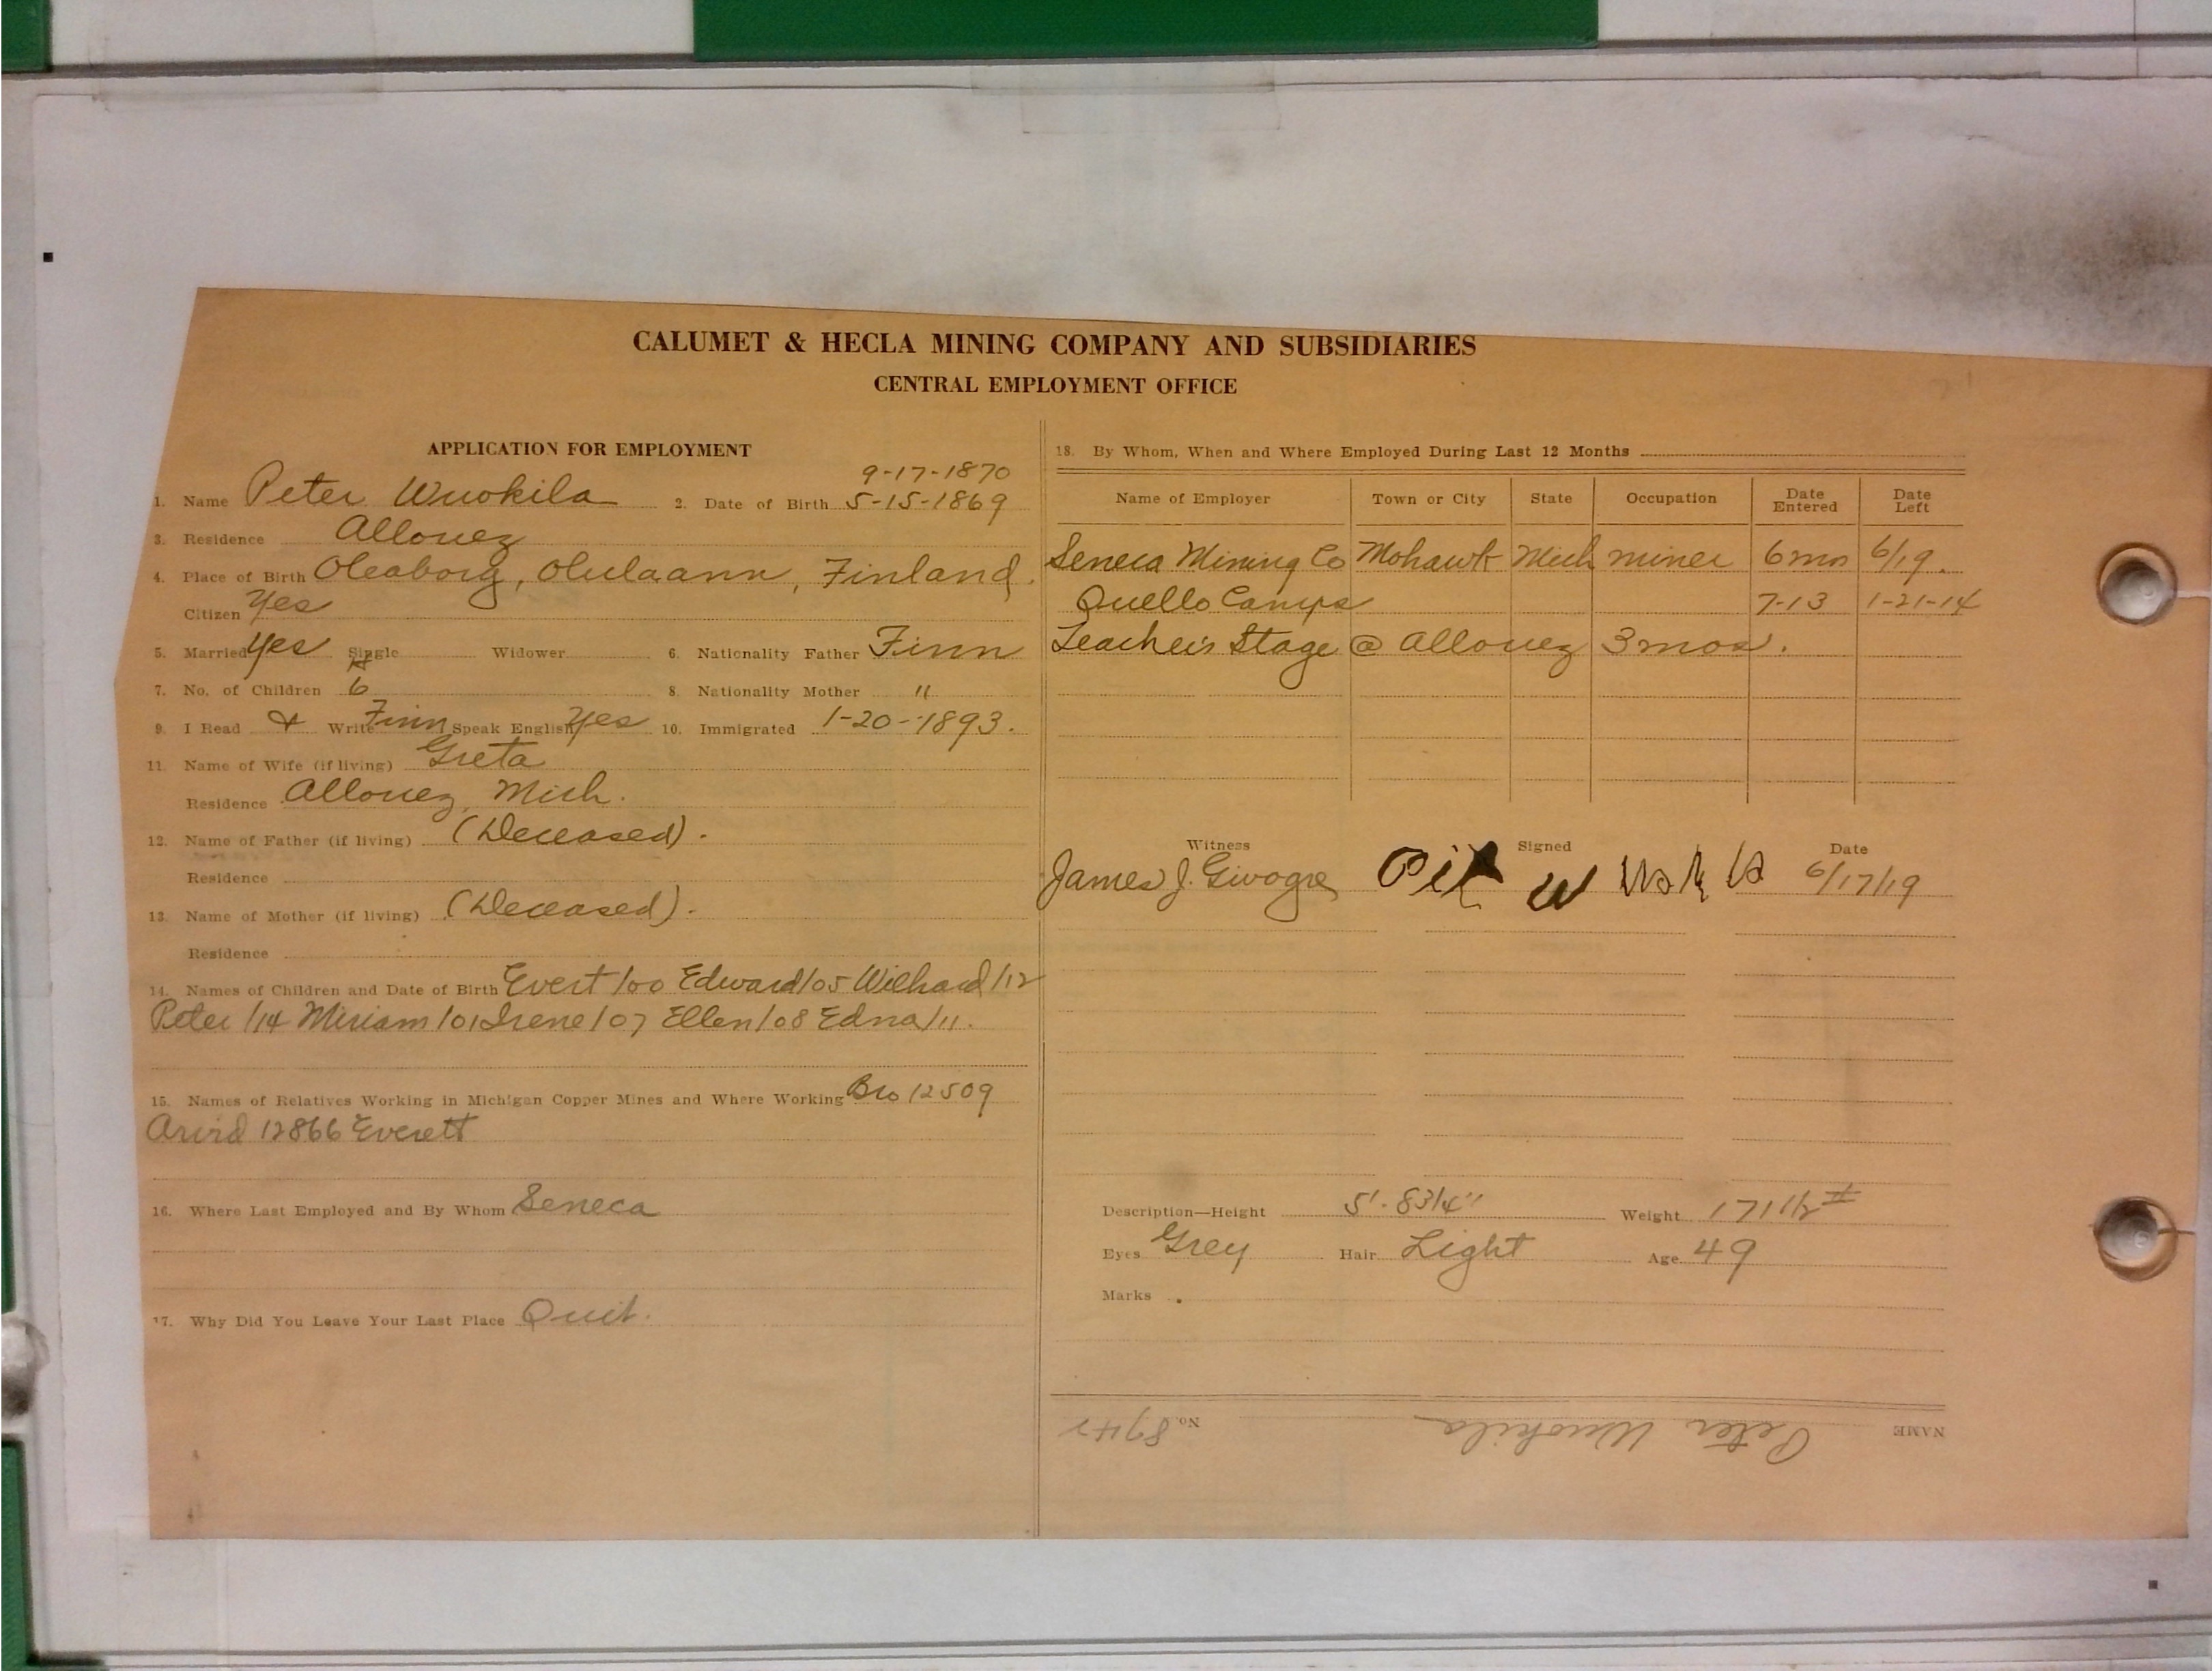 CALUMET & HECLA MINING COMPANY AND SUBSIDIARIES
CENTRAL EMPLOYMENT OFFICE
APPLICATION FOR EMPLOYMENT
9-17-1870
1. Name Peter Wuokila 2. Date of Birth 5-15-1869
3. Residence Allouez
4. Place of Birth Oleaborg, Olulaann, Finland.
Citizen Yes
5. Married Yes Single Widower 6. Nationality Father Finn
7. No. of Children 6 8. Nationality Mother "
9. I Read & Write Finn Speak English Yes 10. Immigrated 1-20-1893.
11. Name of Wife (if living) Greta
Residence Allouez, Mich.
12. Name of Father (if living) (Deceased).
Residence
13. Name of Mother (if living) (Deceased).
Residence
14. Names of Children and Date of Birth Evert/00 Edward/05 Wilhard/12
Peter/14 Miriam/01 Irene/07 Ellen/08 Edna/11.
15. Names of Relatives Working in Michigan Copper Mines and Where Working Bro 12509
Arvid 12866 Everett
16. Where Last Employed and By Whom Seneca
17. Why Did You Leave Your Last Place Quit.
18. By Whom, When and Where Employed During Last 12 Months
Name of Employer Town or City State Occupation Date Entered Date Left
Seneca Mining Co Mohawk Mich miner 6 mos 6/19.
Quello Camps 7-13 1-21-14
Leacher's Stage @ Allouez 3 mos.
Witness Signed Date
James J. 6/17/19
Description—Height 5'-8 3/4" Weight 171 1/2 #
Eyes Grey Hair Light Age 49
Marks .
NAME Peter Wuokila No.